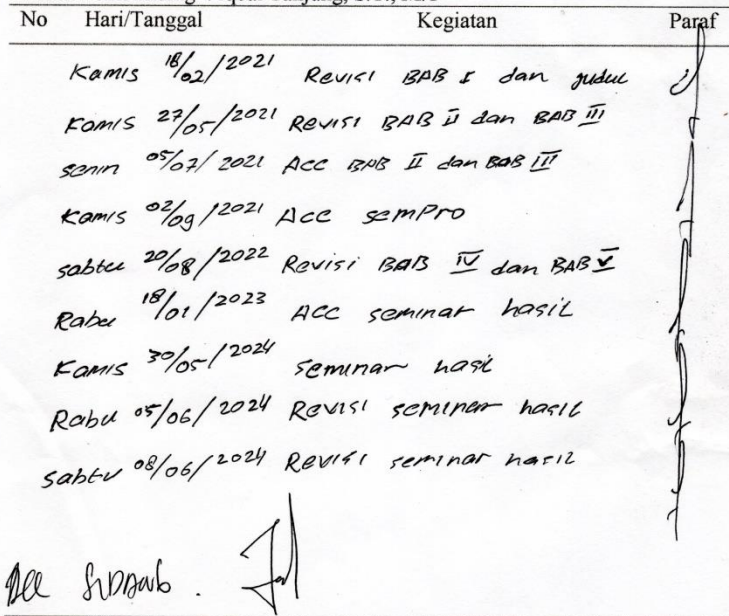 Tanjung, S.T., M.T
No Hari/Tanggal Kegiatan Paraf
Kamis 18/02/2021 Revisi BAB I dan judul
Kamis 27/05/2021 Revisi BAB II dan BAB III
senin 05/07/2021 Acc BAB II dan BAB III
Kamis 02/09/2021 Acc semPro
sabtu 20/08/2022 Revisi BAB IV dan BAB V
Rabu 18/01/2023 Acc seminar hasil
Kamis 30/05/2024 seminar hasil
Rabu 05/06/2024 Revisi seminar hasil
sabtu 08/06/2024 Revisi seminar hasil
Acc